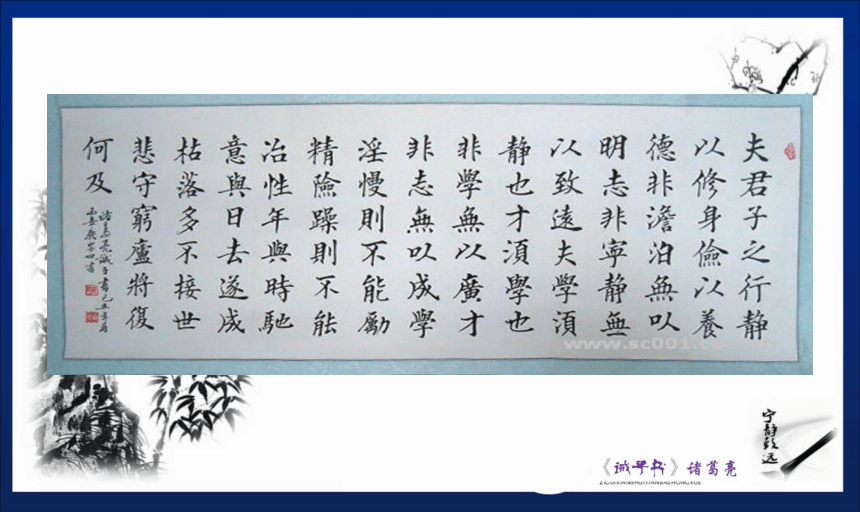 夫君子之行静
以修身儉以養
德非澹泊無以
明志非寧静無
以致遠夫學須
静也才須學也
非學無以廣才
非志無以成學
淫慢則不能勵
精險躁則不能
冶性年與時馳
意與日去遂成
枯落多不接世
悲守窮廬將復
何及
諸葛亮誡子書己丑年
www.sc001.co
宁静致远
《诫子书》诸葛亮